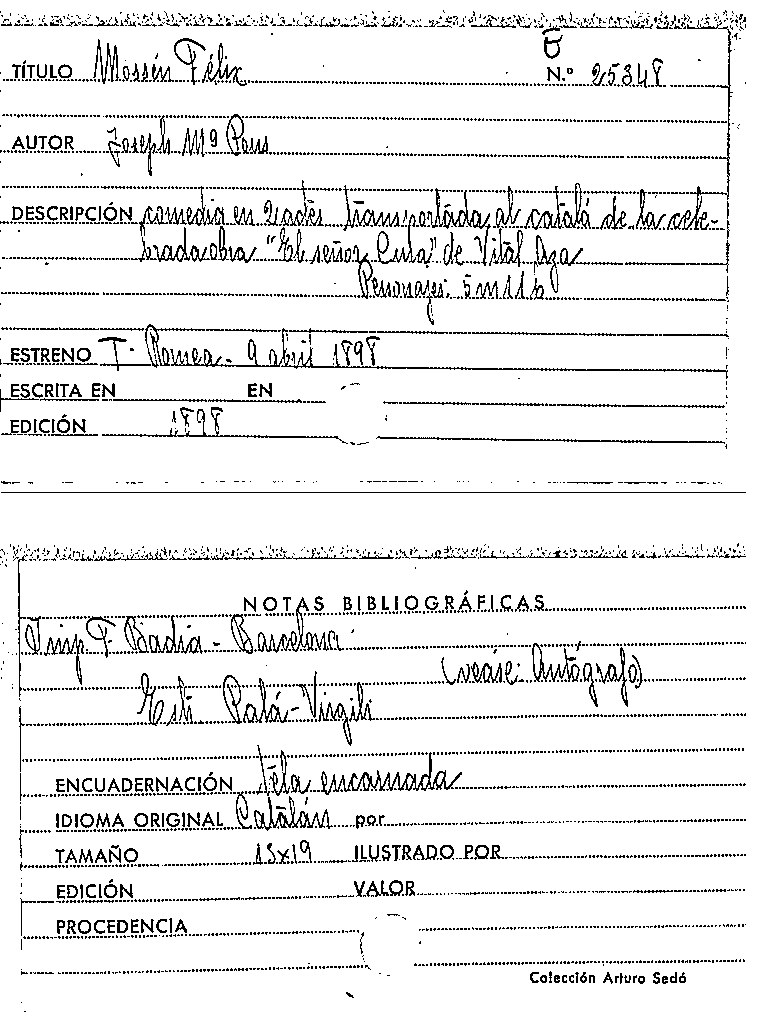 TÍTULO Mossén Félix N.º 25348
AUTOR Joseph Mª Pous
DESCRIPCIÓN comedia en 2 actes transportada al catalá de la cele-
brada obra "El señor Cura" de Vital Aza
Personajes: 5 m 11 h
ESTRENO T. Romea - 9 abril 1898
ESCRITA EN EN
EDICIÓN 1898
NOTAS BIBLIOGRÁFICAS
Imp. F. Badia - Barcelona
(vease: Autógrafo)
Esti Palá-Virgili
ENCUADERNACIÓN tela encarnada
IDIOMA ORIGINAL Catalán por
TAMAÑO 13x19 ILUSTRADO POR
EDICIÓN VALOR
PROCEDENCIA
Colección Arturo Sedó